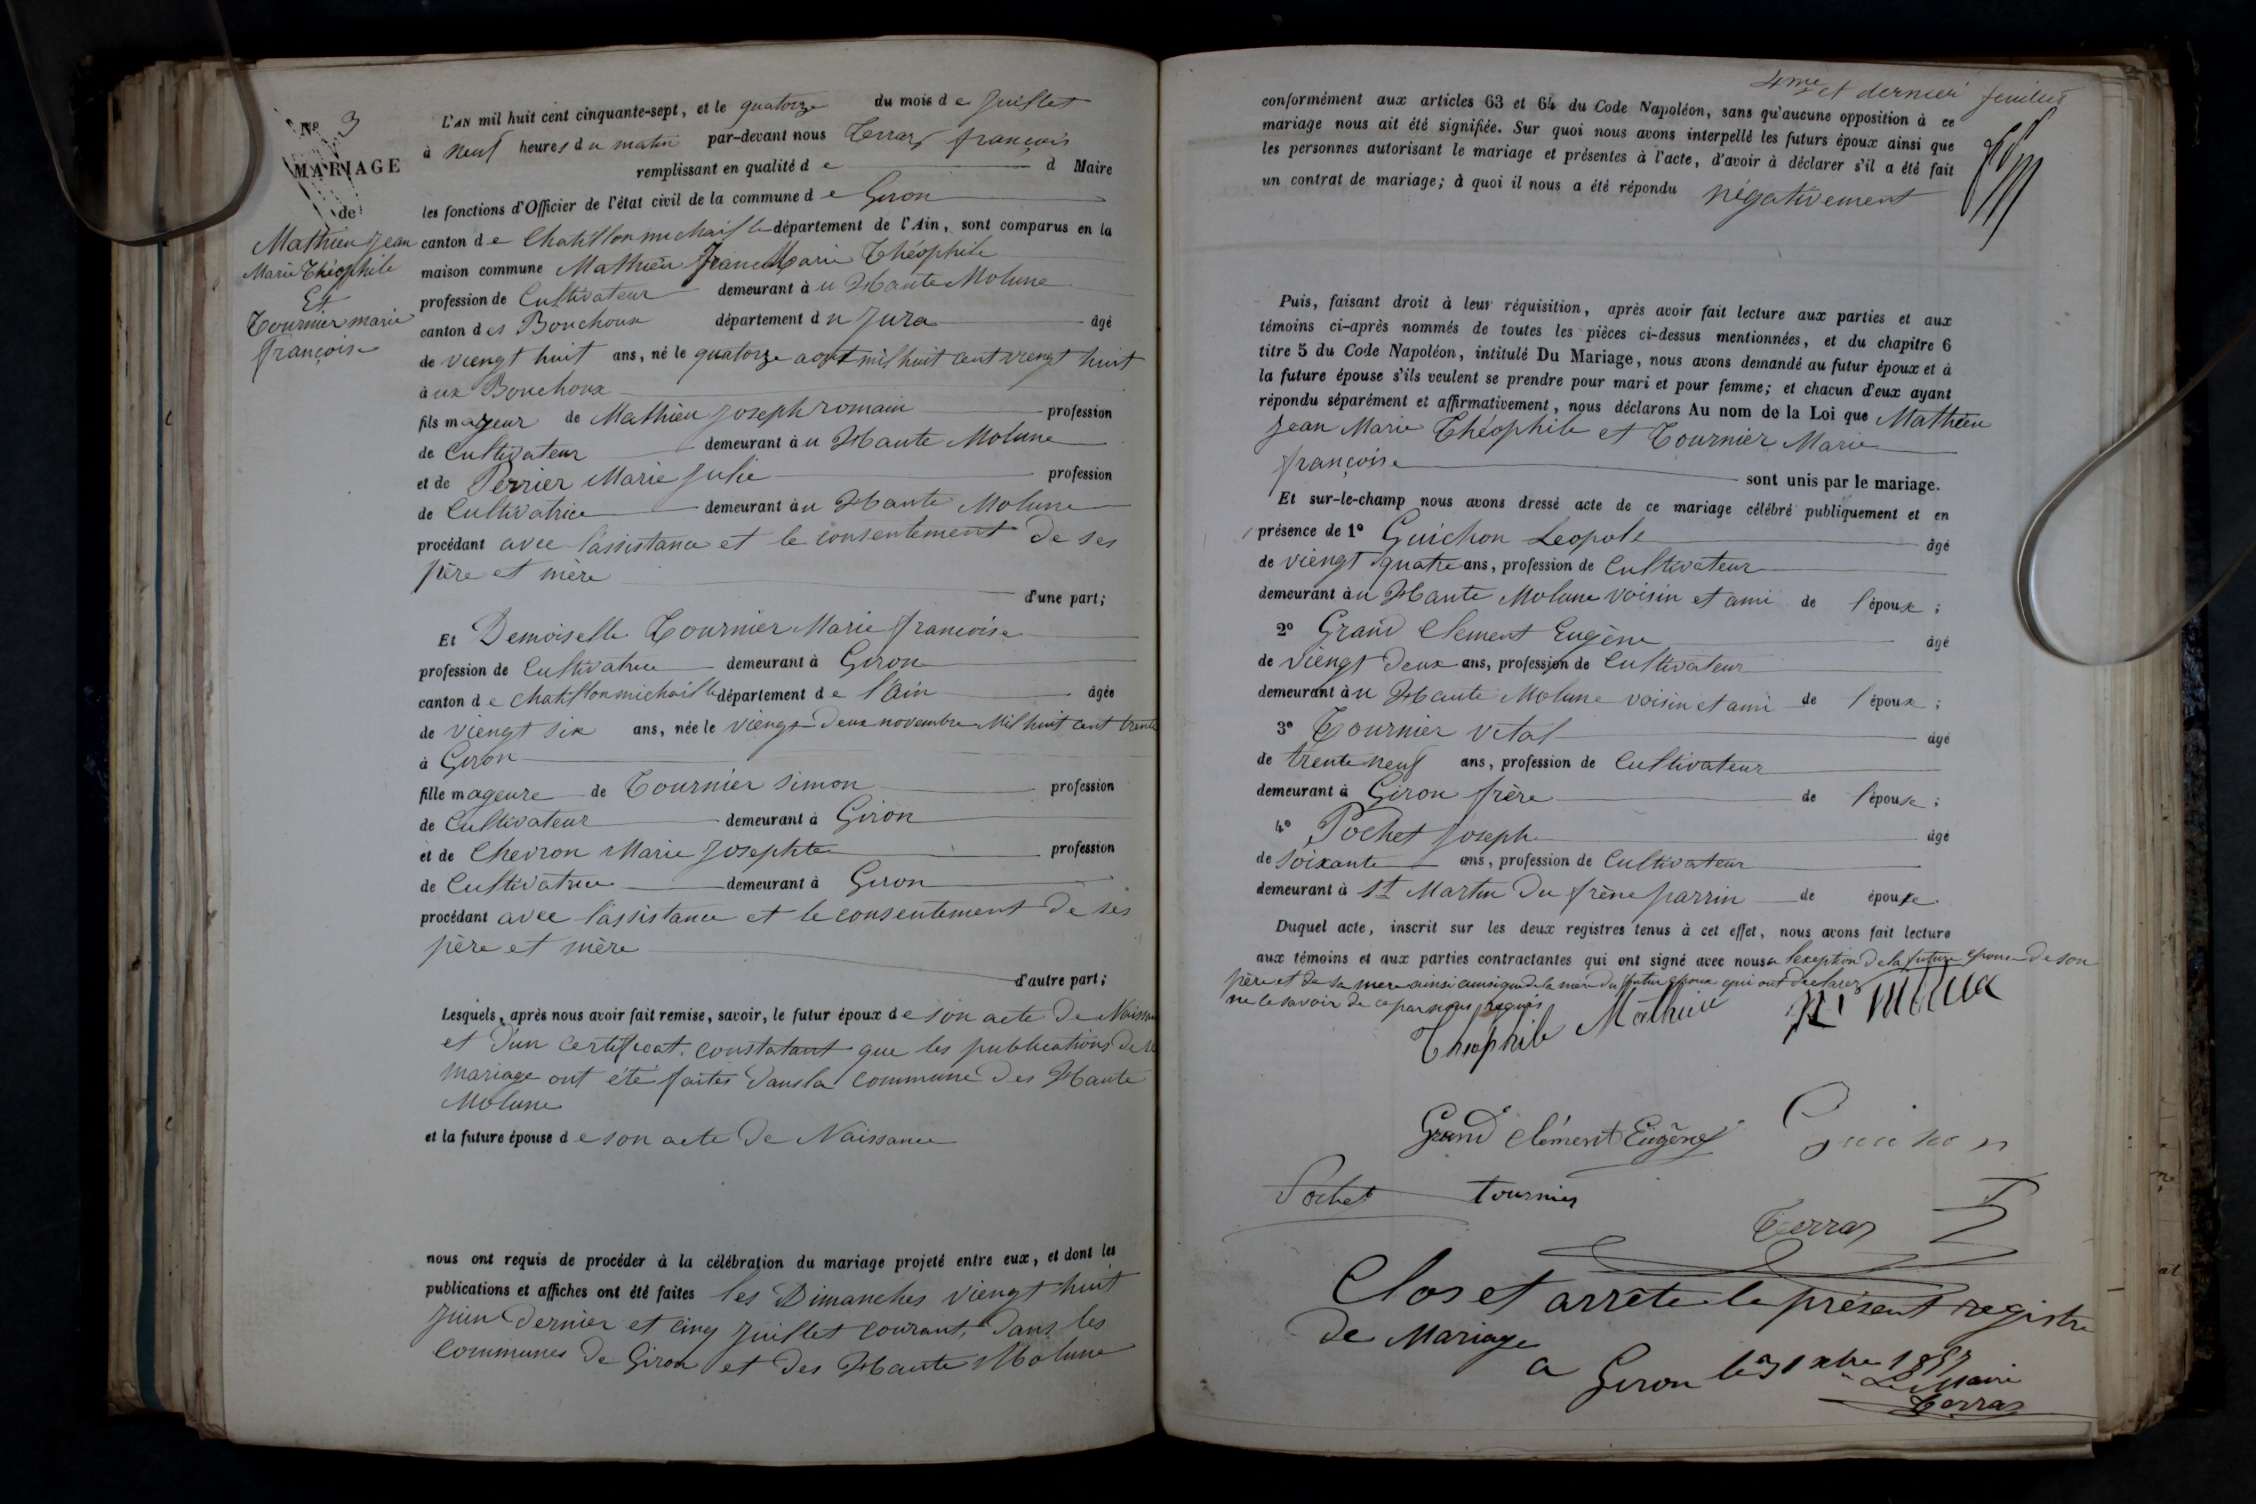 N° 3
MARIAGE
de
Mathieu Jean
Marie Théophile
Et
Tournier marie
françoise
L'AN mil huit cent cinquante-sept, et le quatorze du mois de Juillet
à neuf heures du matin par-devant nous Terraz françois
remplissant en qualité de d Maire
les fonctions d'Officier de l'état civil de la commune de Giron
canton de Chatillonmichaille département de l'Ain, sont comparus en la
maison commune Mathieu Jean Marie Théophile
profession de Cultivateur demeurant à u Haute Molune
canton des Bouchoux département du Jura âgé
de viengt huit ans, né le quatorze aout mil huit cent viengt huit
à ux Bouchoux
fils mageur de Mathieu Joseph romain profession
de Cultivateur demeurant à u Haute Molune
et de Perrier Marie Julie profession
de Cultivatrice demeurant à u Haute Molune
procédant avec l'assistance et le consentement de ses
père et mère
d'une part;
Et Demoiselle Tournier Marie françoise
profession de Cultivatrice demeurant à Giron
canton de Chatillonmichaille département de l'Ain âgée
de viengt six ans, née le viengt-deux novembre Mil huit cent trente
à Giron
fille mageure de Tournier Simon profession
de Cultivateur demeurant à Giron
et de Chevron Marie Josephte profession
de Cultivatrice demeurant à Giron
procédant avec l'assistance et le consentement de ses
père et mère
d'autre part;
Lesquels, après nous avoir fait remise, savoir, le futur époux de son acte de
et d'un certificat constatant que les publications de
mariage ont été faites dans la commune des Haute
Molune
et la future épouse de son acte de Naissance
nous ont requis de procéder à la célébration du mariage projeté entre eux, et dont les
publications et affiches ont été faites les Dimanches viengt huit
juin dernier et cinq Juillet courant, dans les
communes de Giron et des Haute Molune
4me et dernier feuillet
conformément aux articles 63 et 64 du Code Napoléon, sans qu'aucune opposition à ce
mariage nous ait été signifiée. Sur quoi nous avons interpellé les futurs époux ainsi que
les personnes autorisant le mariage et présentes à l'acte, d'avoir à déclarer s'il a été fait
un contrat de mariage; à quoi il nous a été répondu négativement
Puis, faisant droit à leur réquisition, après avoir fait lecture aux parties et aux
témoins ci-après nommés de toutes les pièces ci-dessus mentionnées, et du chapitre 6
titre 5 du Code Napoléon, intitulé Du Mariage, nous avons demandé au futur époux et à
la future épouse s'ils veulent se prendre pour mari et pour femme; et chacun d'eux ayant
répondu séparément et affirmativement, nous déclarons Au nom de la Loi que Mathieu
Jean Marie Théophile et Tournier Marie
françoise
sont unis par le mariage.
Et sur-le-champ nous avons dressé acte de ce mariage célébré publiquement et en
présence de 1° Guichon Leopole âgé
de viengt quatre ans, profession de Cultivateur
demeurant à u Haute Molune voisin et ami de l'époux;
2° Grand Clement Eugène âgé
de viengt deux ans, profession de Cultivateur
demeurant à u Haute Molune voisin et ami de l'époux;
3° Tournier Vital âgé
de trente neuf ans, profession de Cultivateur
demeurant à Giron frère de l'épouse;
4° Pochet Joseph âgé
de soixante ans, profession de Cultivateur
demeurant à St Martin du frène parrin de épouse
Duquel acte, inscrit sur les deux registres tenus à cet effet, nous avons fait lecture
aux témoins et aux parties contractantes qui ont signé avec nous a l'exeption de la future épouse de son
père et de sa mère ainsi que de la mère du futur époux qui ont déclarer
ne le savoir de ce par nous requis
Théophile Mathieu
Grand Clément Eugène
Pochet tournier
Terraz
Clos et arrêté le présent registre
de Mariage
a Giron le 31 xbre 1857
Le Maire
Terraz